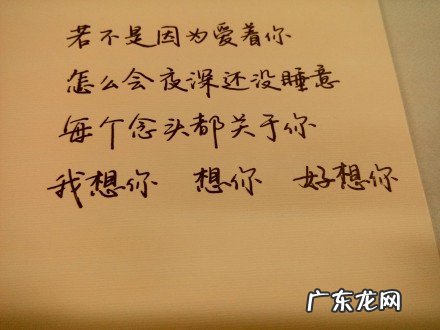 若不是因为爱着你
怎么会夜深还没睡意
每个念头都关于你
我想你 想你 好想你
广东龙网